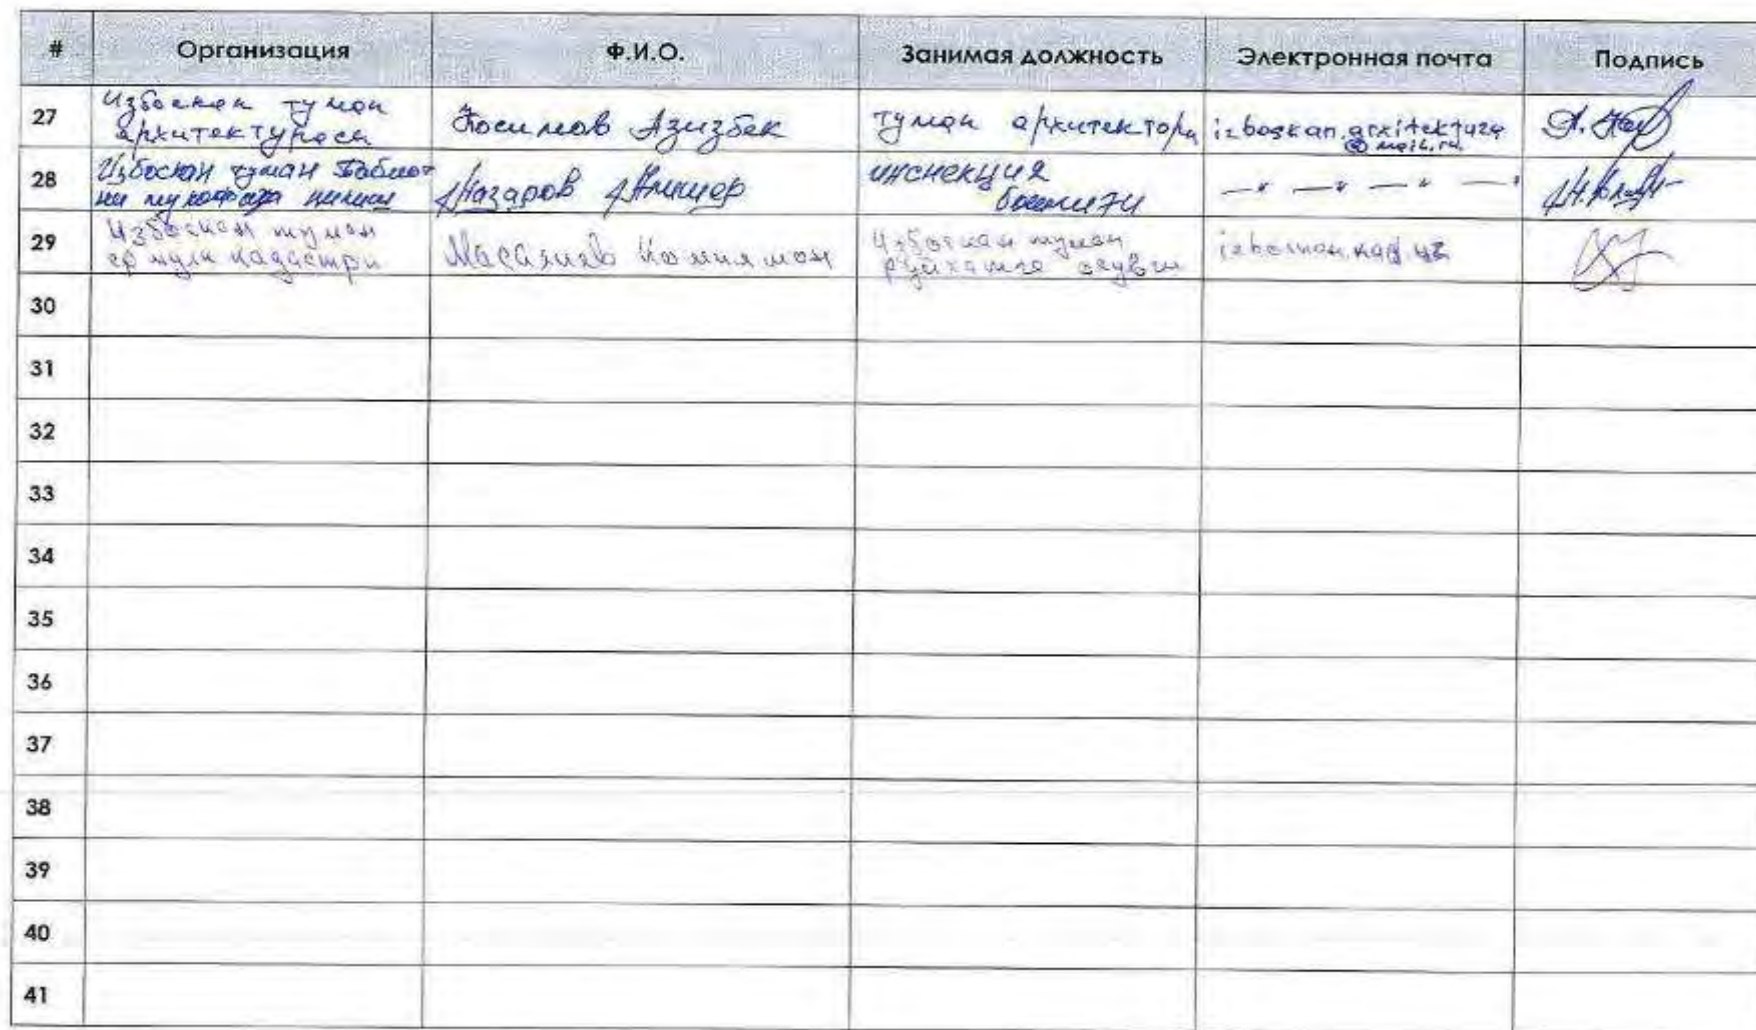 # Организация Ф.И.О. Занимая должность Электронная почта Подпись
27 Избоскан туман архитектураси Косимов Азизбек туман архитектори izboskan.arxitektura@mail.ru
28 Избоскан туман Табиат ни мухофаза килиш Назаров Алишер инспекция бошлиғи —"—"—"—"
29 Избоскан туман ер мулк кадастри Избоскан туман
30
31
32
33
34
35
36
37
38
39
40
41